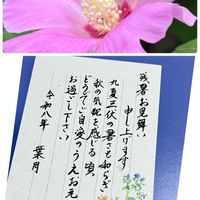 残暑お見舞い
申し上げます
九夏三伏の暑さも和らぎ
秋の気配を感じる頃、
どうぞご自愛のうえお元気で
お過ごし下さい
令和八年
葉月